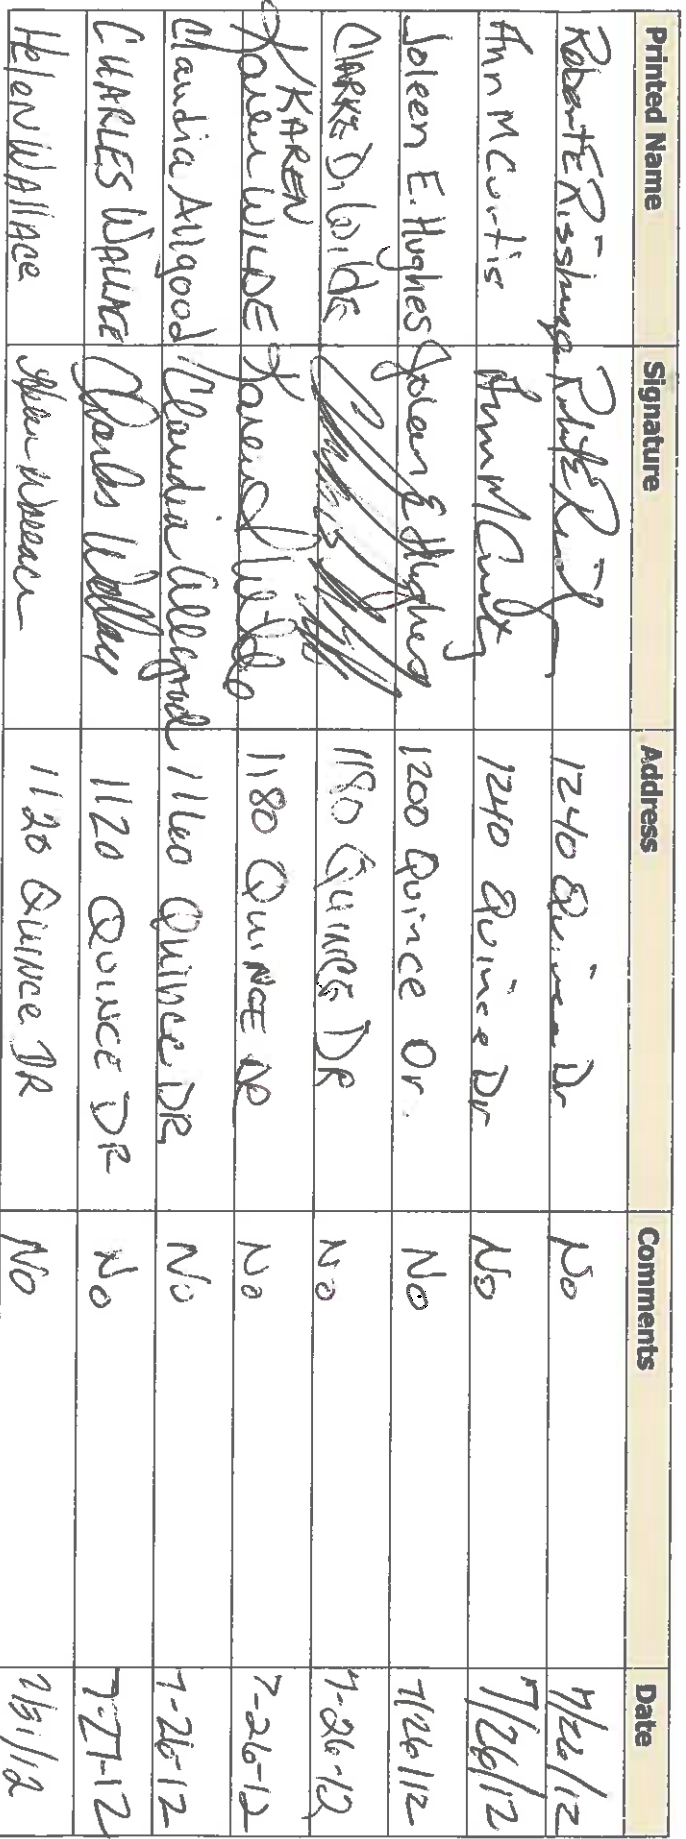 Printed Name Signature Address Comments Date
Robert E Robert E 1240 Quince Dr No 7/26/12
Ann M Curtis Ann M Curtis 1240 Quince Dr No 7/26/12
Joleen E. Hughes Joleen E Hughes 1200 Quince Dr. No 7/26/12
CLARKE D. Wilde 1180 QUINCE DR No 7-26-12
KAREN
Karen WILDE Karen Wilde 1180 QUINCE DR No 7-26-12
Claudia Allgood Claudia Allgood 1160 Quince DR No 7-26-12
CHARLES WALLACE Charles Wallace 1120 QUINCE DR No 7-27-12
Helen Wallace Helen Wallace 1120 Quince DR No 7/31/12